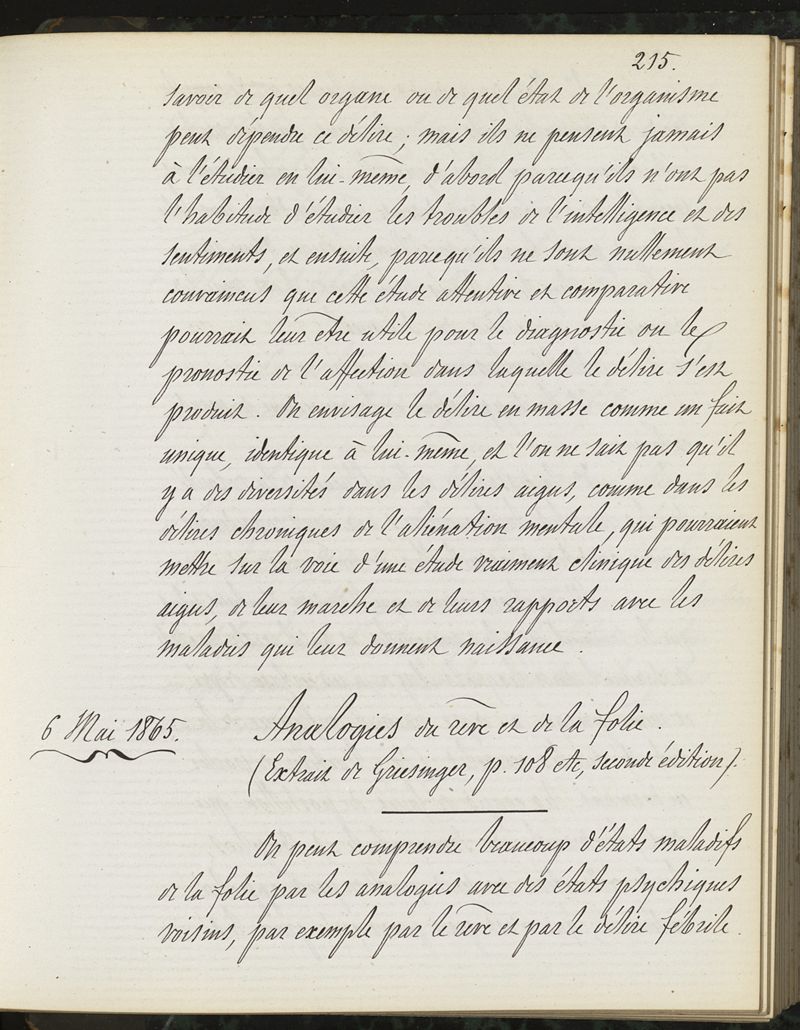 215.
savoir de quel organe ou de quel état de l'organisme
peut dépendre ce délire ; mais ils ne pensent jamais
à l'étudier en lui-même, d'abord parcequ'ils n'ont pas
l'habitude d'étudier les troubles de l'intelligence et des
sentiments, et ensuite, parcequ'ils ne sont nullement
convaincus que cette étude attentive et comparative
pourrait leur être utile pour le diagnostic ou le
pronostic de l'affection dans laquelle le délire s'est
produit. On envisage le délire en masse comme un fait
unique, identique à lui-même, et l'on ne sait pas qu'il
y a des diversités dans les délires aigus, comme dans les
délires chroniques de l'aliénation mentale, qui pourraient
mettre sur la voie d'une étude vraiment clinique des délires
aigus, de leur marche et de leurs rapports avec les
maladies qui leur donnent naissance.
6 Mai 1865.
Analogies du rêve et de la folie.
(Extrait de Griesinger, p. 108 etc, seconde édition).
On peut comprendre beaucoup d'états maladifs
de la folie par les analogies avec des états psychiques
voisins, par exemple par le rêve et par le délire fébrile.